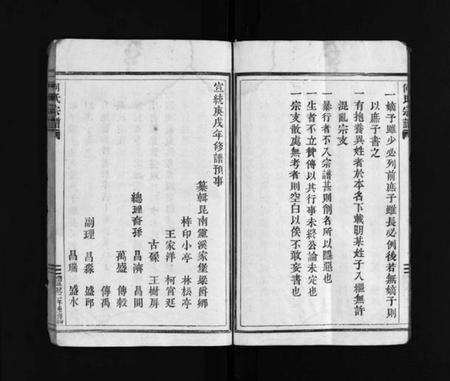 一嫡子雖少必列前庶子雖長必例後若無嫡子則
以庶子書之
一有抱養異姓者於本名下載明某姓子入繼無許
混亂宗支
一暴行者不入宗譜甚則削名所以懲惡也
一生者不立贊傳以其行事未終公論未定也
一宗支散處無考者則空白以俟不敢妄書也
宣統庚戌年修譜預事
纂輯昆南靈溪家堡梁爵鄉
梓印小亭 林松亭
王家洋 柯宮廷
古磉 王樹屏
總理裔孫 昌濤 昌開
萬盛 傳毅
傳禹
副理 昌淼 盛郎
昌瑞 盛水
何氏宗譜